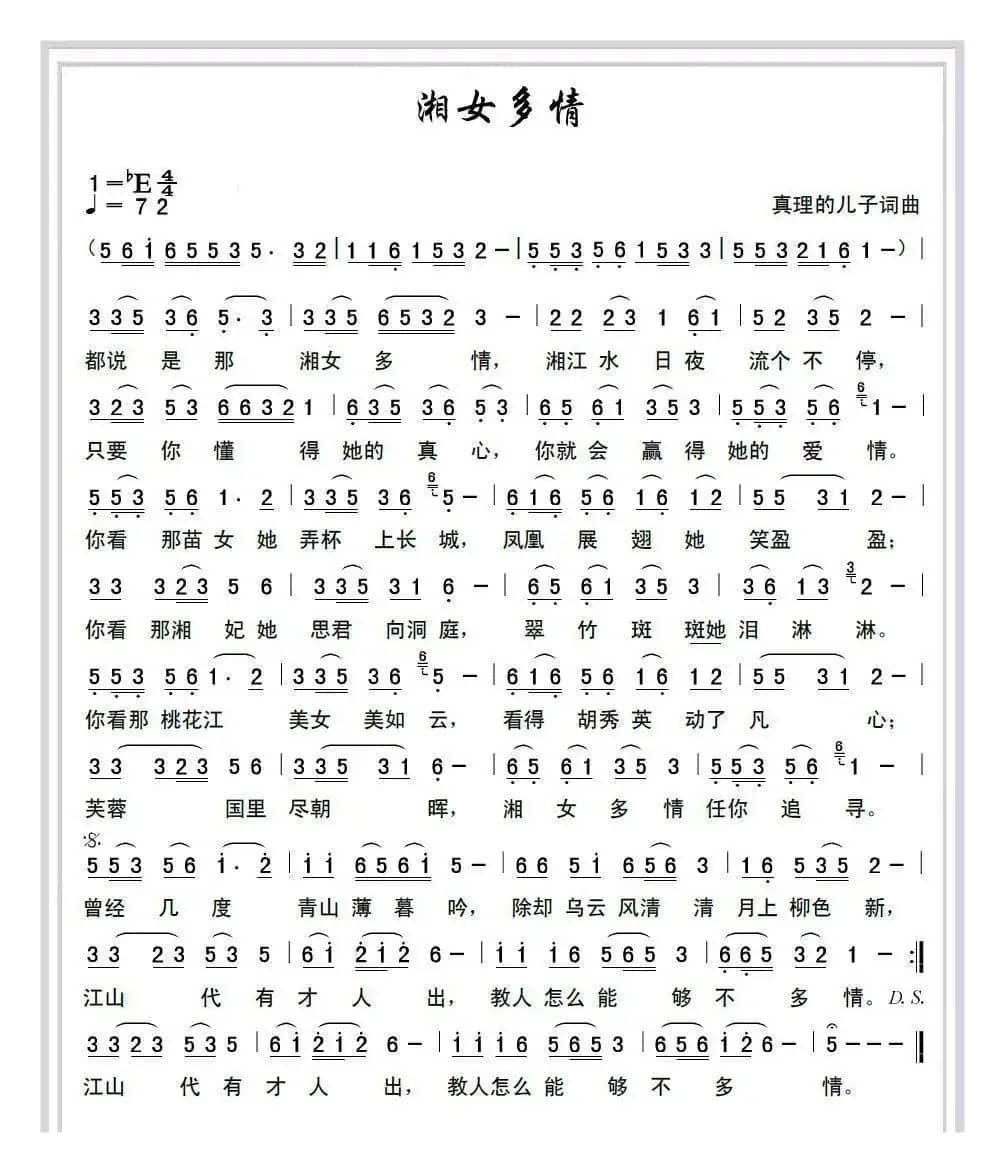 湘女多情
1=♭E 4/4
♩= 72
真理的儿子词曲
（5 6 i 6 5 5 3 5. 3 2 | 1 1 6 1 5 3 2 - | 5 5 3 5 6 1 5 3 3 | 5 5 3 2 1 6 1 - ）|
3 3 5 3 6 5. 3 | 3 3 5 6 5 3 2 3 - | 2 2 2 3 1 6 1 | 5 2 3 5 2 - |
都说 是 那 湘女 多 情， 湘江 水 日 夜 流个 不 停，
3 2 3 5 3 6 6 3 2 1 | 6 3 5 3 6 5 3 | 6 5 6 1 3 5 3 | 5 5 3 5 6 6 1 - |
只要 你 懂 得 她的 真 心， 你就 会 赢 得 她的 爱 情。
5 5 3 5 6 1. 2 | 3 3 5 3 6 6 5 - | 6 1 6 5 6 1 6 1 2 | 5 5 3 1 2 - |
你看 那苗 女 她 弄杯 上长 城， 凤凰 展 翅 她 笑盈 盈；
3 3 3 2 3 5 6 | 3 3 5 3 1 6 - | 6 5 6 1 3 5 3 | 3 6 1 3 3 2 - |
你看 那湘 妃 她 思君 向洞 庭， 翠 竹 斑 斑她 泪 淋 淋。
5 5 3 5 6 1. 2 | 3 3 5 3 6 6 5 - | 6 1 6 5 6 1 6 1 2 | 5 5 3 1 2 - |
你看那 桃花江 美女 美如 云， 看得 胡秀 英 动了 凡 心；
3 3 3 2 3 5 6 | 3 3 5 3 1 6 - | 6 5 6 1 3 5 3 | 5 5 3 5 6 6 1 - |
芙蓉 国里 尽朝 晖， 湘 女 多 情 任你 追 寻。
5 5 3 5 6 i. 2 | i i 6 5 6 i 5 - | 6 6 5 i 6 5 6 3 | 1 6 5 3 5 2 - |
曾经 几 度 青山 薄 暮 吟， 除却 乌云 风清 清 月上 柳色 新，
3 3 2 3 5 3 5 | 6 i 2 i 2 6 - | i i i 6 5 6 5 3 | 6 6 5 3 2 1 - :|
江山 代 有 才 人 出， 教人 怎么 能 够 不 多 情。 D. S.
3 3 2 3 5 3 5 | 6 i 2 i 2 6 - | i i i 6 5 6 5 3 | 6 5 6 i 2 6 - | 5 - - - |
江山 代 有 才 人 出， 教人怎么 能 够 不 多 情。